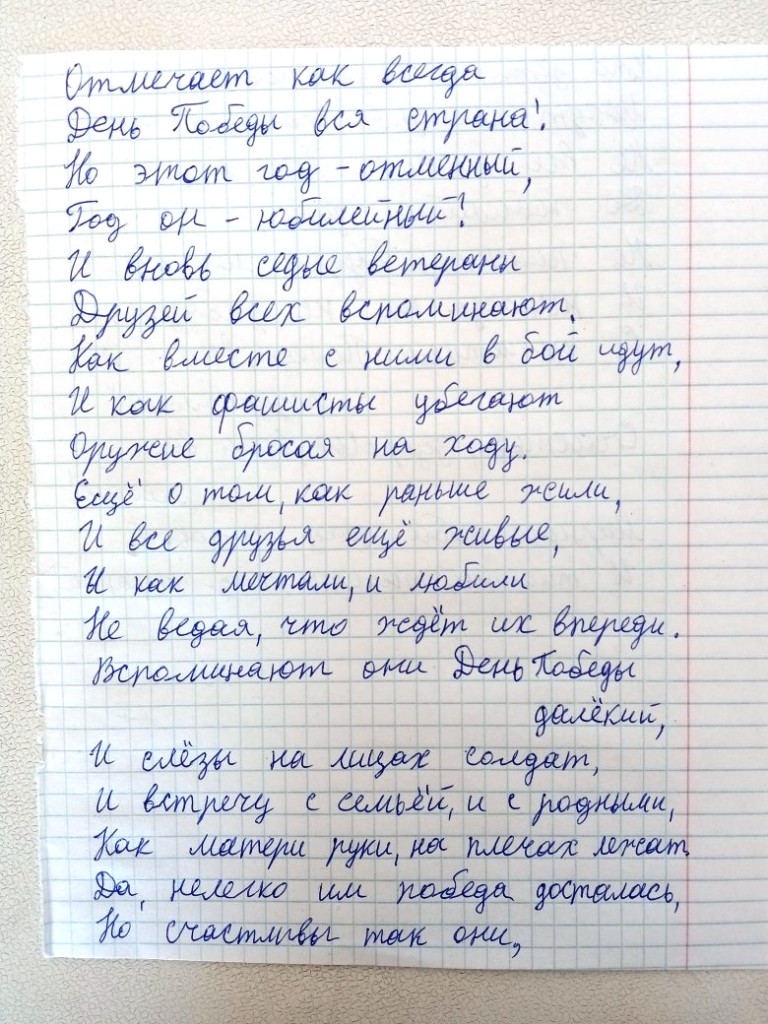 Отмечает как всегда
День Победы вся страна!
Но этот год - отменный,
Год он - юбилейный!
И вновь седые ветераны
Друзей всех вспоминают.
Как вместе с ними в бой идут,
И как фашисты убегают
Оружие бросая на ходу.
Ещё о том, как раньше жили,
И все друзья ещё живые,
И как мечтали, и любили
Не ведая, что ждёт их впереди.
Вспоминают они День Победы
далёкий,
И слёзы на лицах солдат,
И встречу с семьёй, и с родными,
Как матери руки, на плечах лежат.
Да, нелегко им победа досталась,
Но счастливы так они,